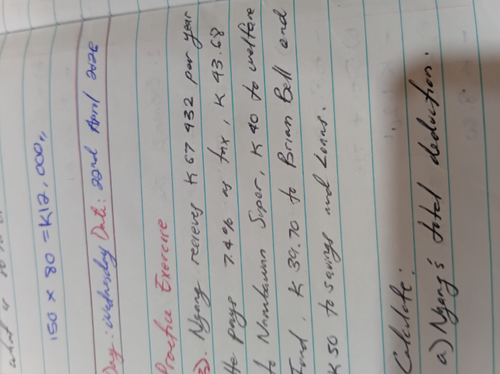 what is
150 x 80 = K12,000,,
Day: Wednesday Date: 22nd April 2026
Practice Exercise
3). Nyang recieves K 67 432 per year
He pays 7.4% as tax, K 93.68
to Nambawan Super, K 40 to welfare
Fund, K 39.70 to Brian Bell and
K 50 to savings and Loans.
Calculate:
a) Nyang's total deduction.